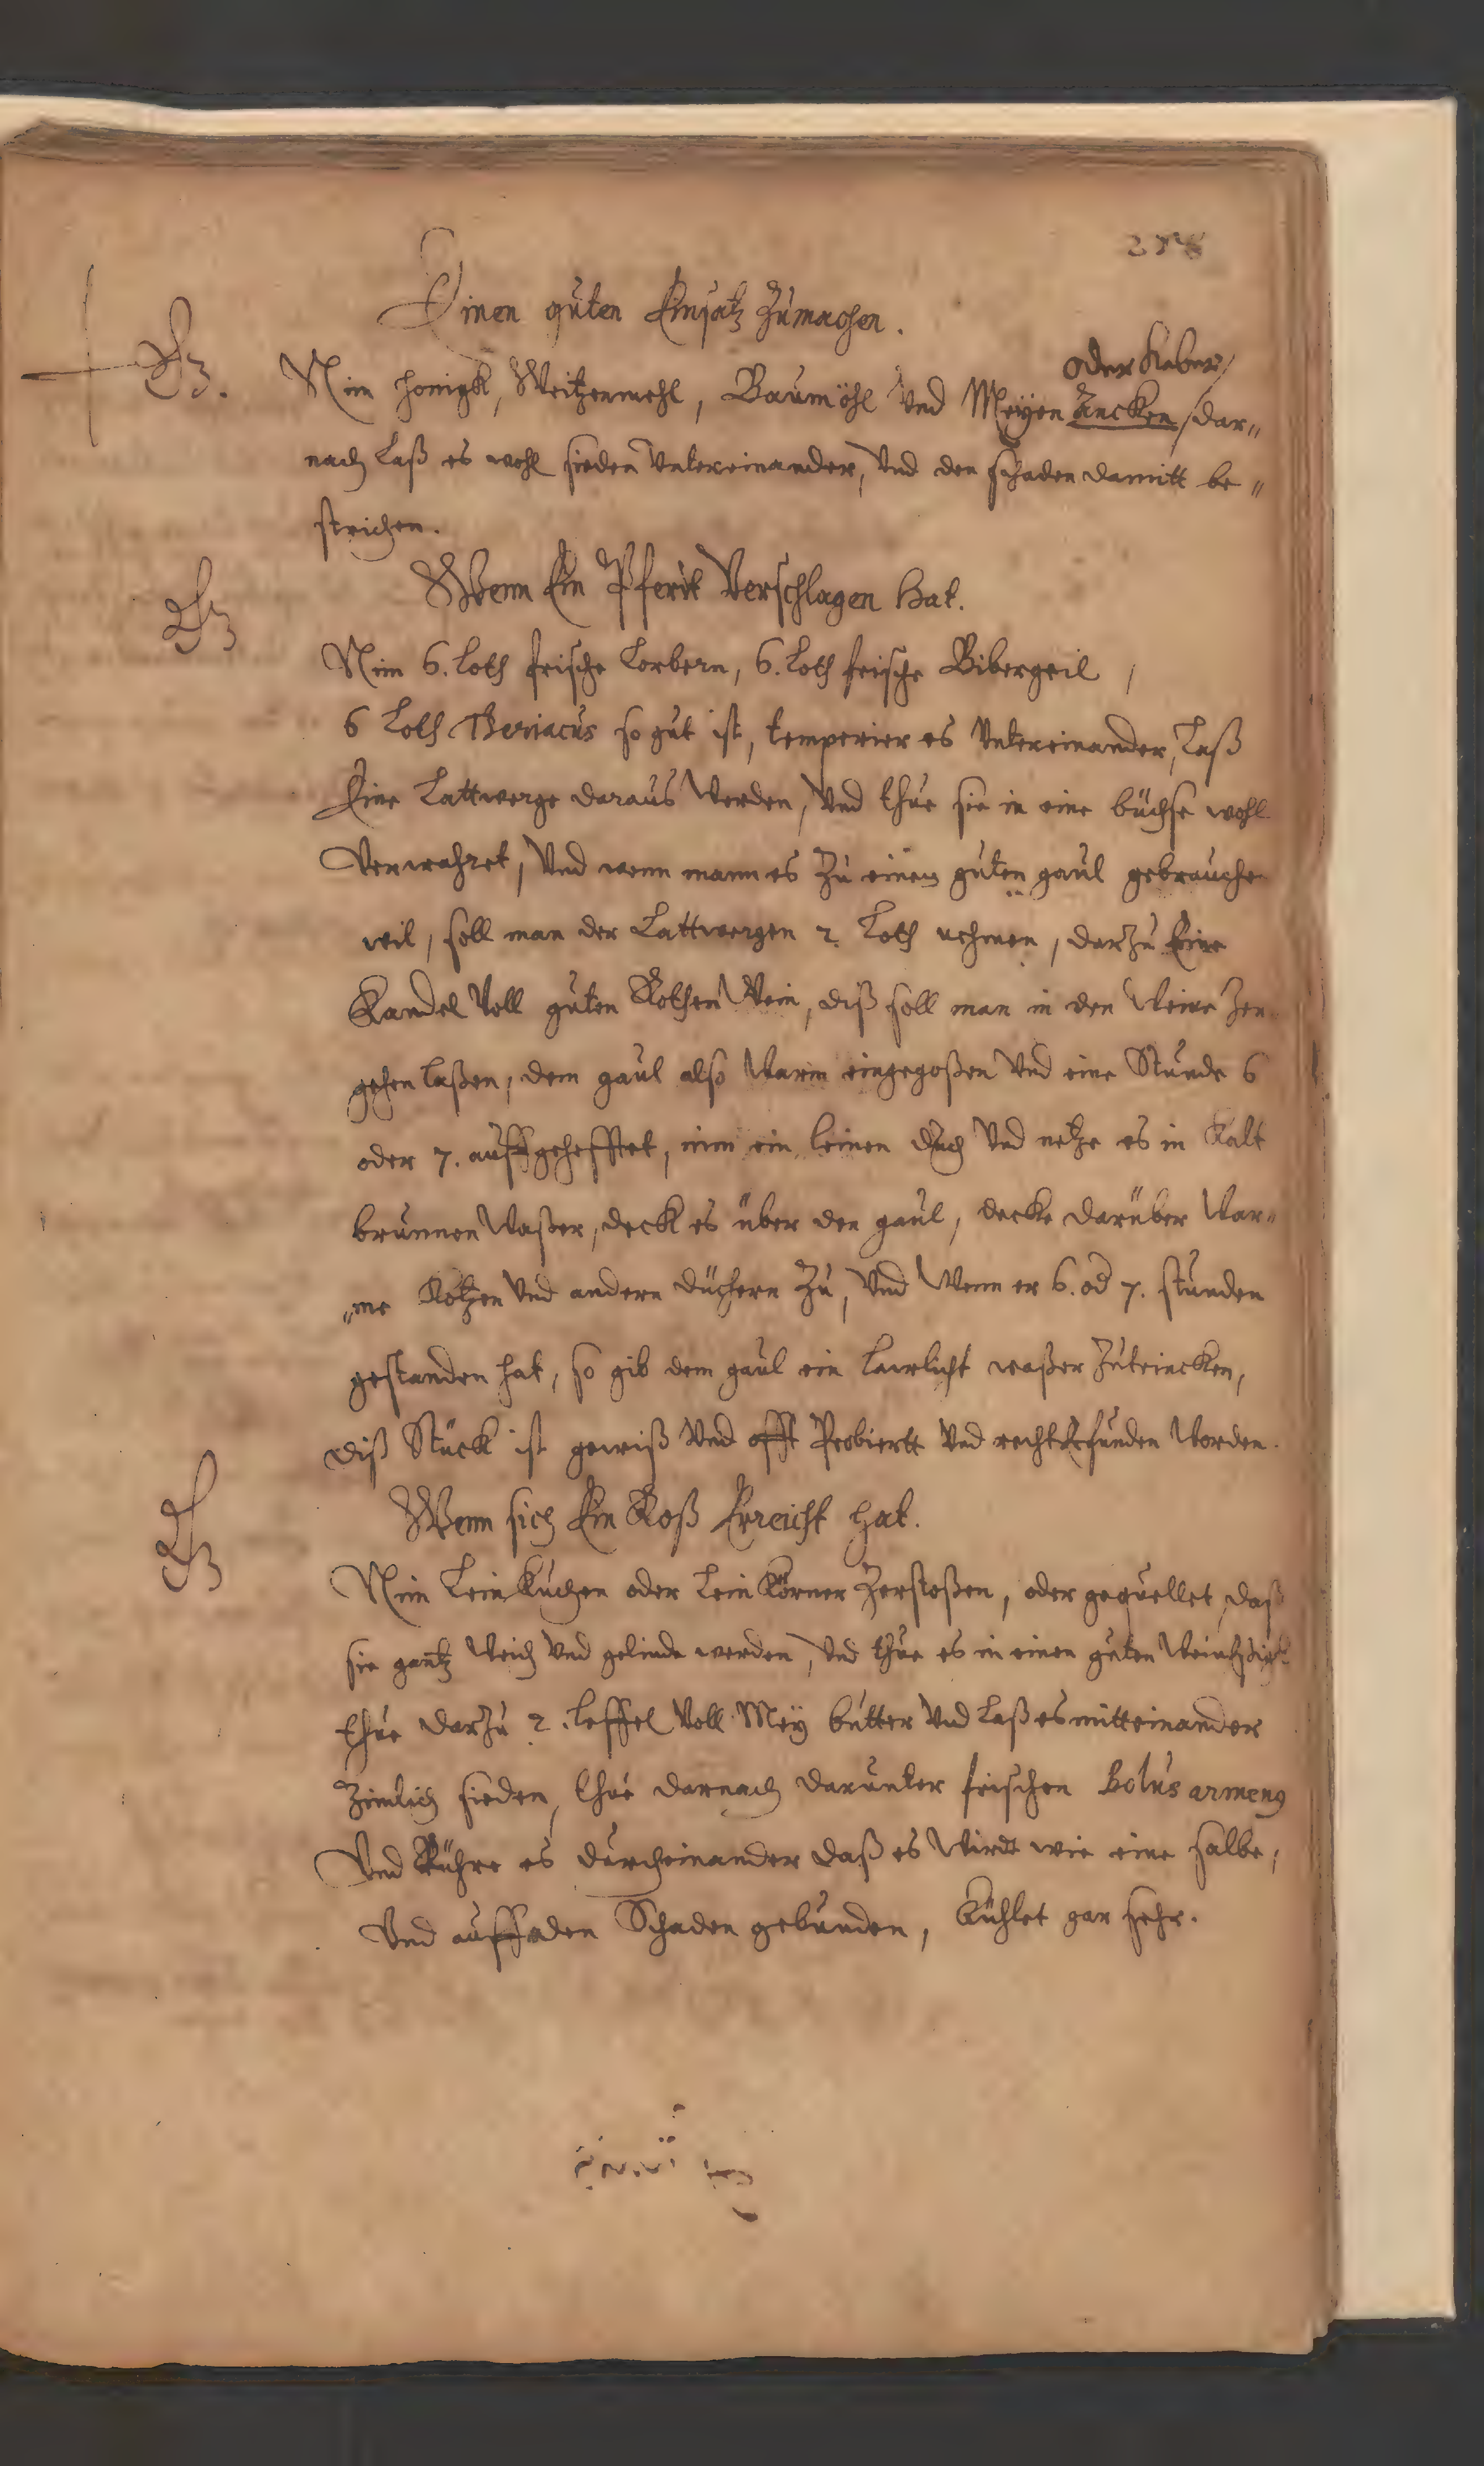 Einen guten Einsatz Zumachen.
oder Keber/
Nim honigk, Weitzenmehl, Baumöhl Vnd Meÿen Ancken /dar„
nach Laß es wohl sieden Vntereinander, Vnd den schaden damitt be„
strichen.
Wenn Ein Pferdt Verschlagen Hat.
Nim 6. Loth frische Lorbern, 6. Loth frische Bibergeil,
6 Loth Theriacus so gut ist, temperier es Vntereinander, Laß
Eine Lattwerge daraus Werden, Vnd thue sie in eine büchse wohl
Verwahret, Vnd wenn mann es Zu einem guten gaul gebrauchen
wil, soll man der Lattwergen 2 Loth nehmen, darzu Eine
Kandel Voll guten Rothen Wein, diß soll man in den Weine Zer
gehen laßen, dem gaul also Warm eingegoßen Vnd eine Stunde 6
oder 7. auffgehefftet, nim ein leinen duch Vnd netze es in Kalt
brunnen Waßer, deck es über den gaul, decke darüber War„
„me Kotzen Vnd andern düchern Zu, Vnd Wenn er 6. od 7. stunden
gestanden hat, so gib dem gaul ein lawlicht waßer Zutrincken,
diß Stück ist gewiß Vnd offt Probiertt Vnd recht Erfunden Worden.
Wenn sich Ein Roß Erreicht hat.
Nim Lein Kuchen oder Lein Körner Zerstoßen, oder gequellet, daß
sie gantz Weich Vnd gelinde werden, Vnd thue es in einen guten Weineßig
thue darzu 2. leffel Voll Meÿ butter Vnd Laß es mitteinander
Zimlich sieden, thue darnach darunter frischen bolus armeng
Vnd Rühre es durcheinander daß es Wirdt wie eine salbe,
Vnd auff den Schaden gebunden, Kühlet gar sehr.